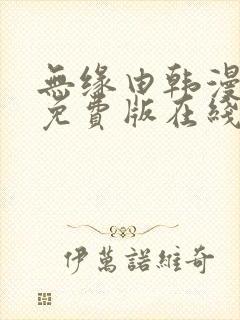 無緣由韩漫
免費版在綫
伊萬諾維奇